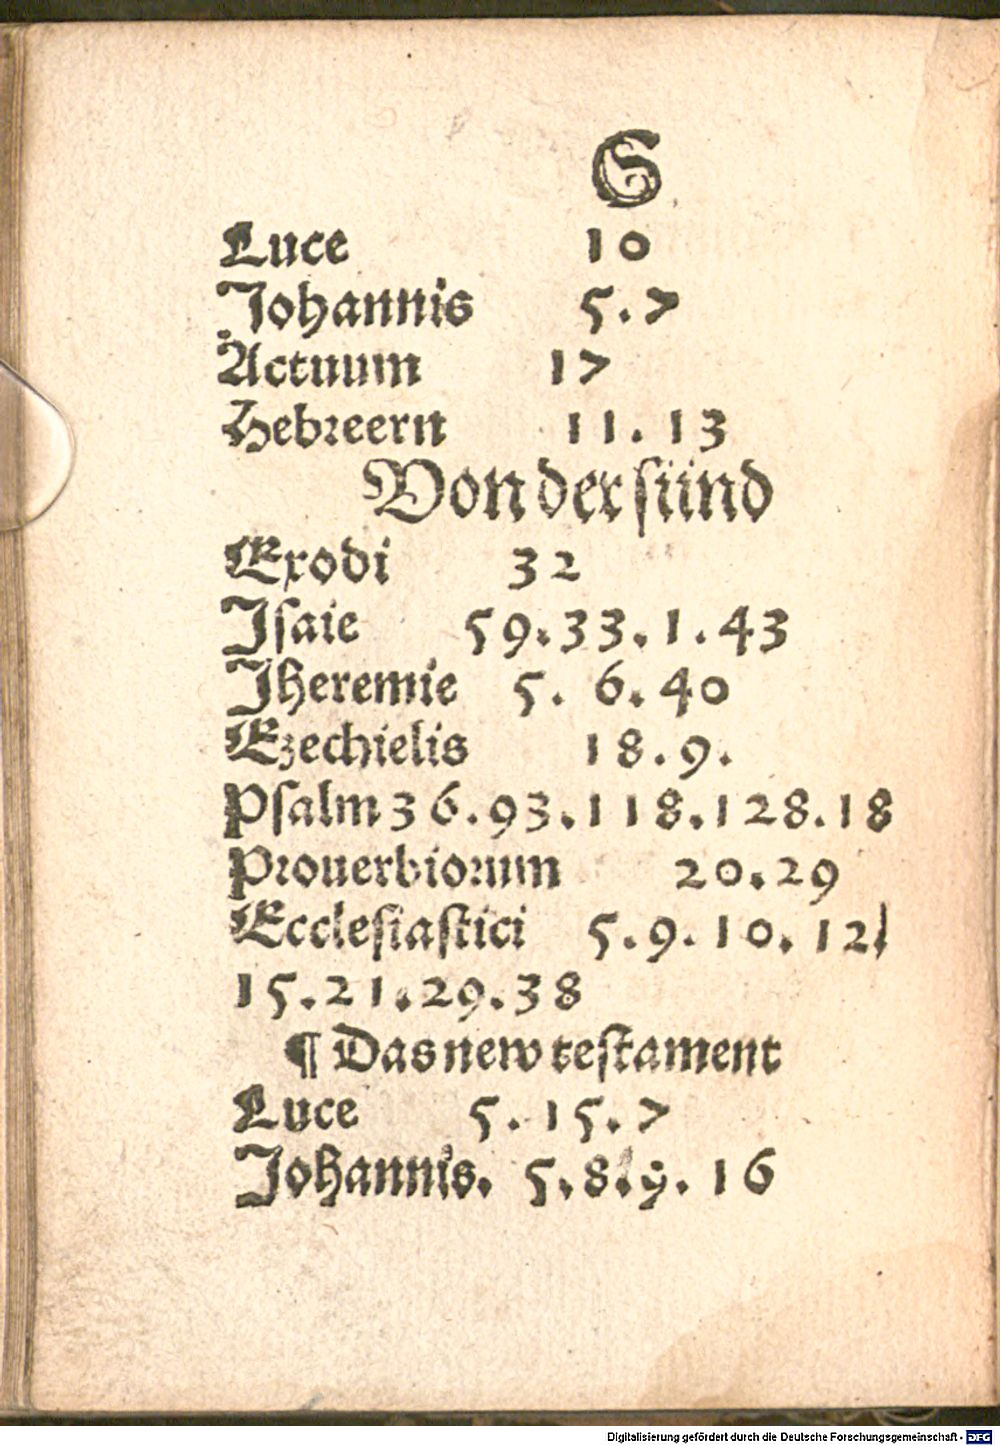 S
Luce 10
Johannis 5.7
Actuum 17
Hebreern 11.13
Von der sünd
Exodi 32
Jsaie 59.33.1.43
Jheremie 5. 6.40
Ezechielis 18.9.
Psalm 36.93.118.128.18
Prouerbiorum 20.29
Ecclesiastici 5.9.10.12/
15.21.29.38
¶ Das new testament
Luce 5.15.7
Johannis. 5.8.9. 16
Digitalisierung gefördert durch die Deutsche Forschungsgemeinschaft - DFG